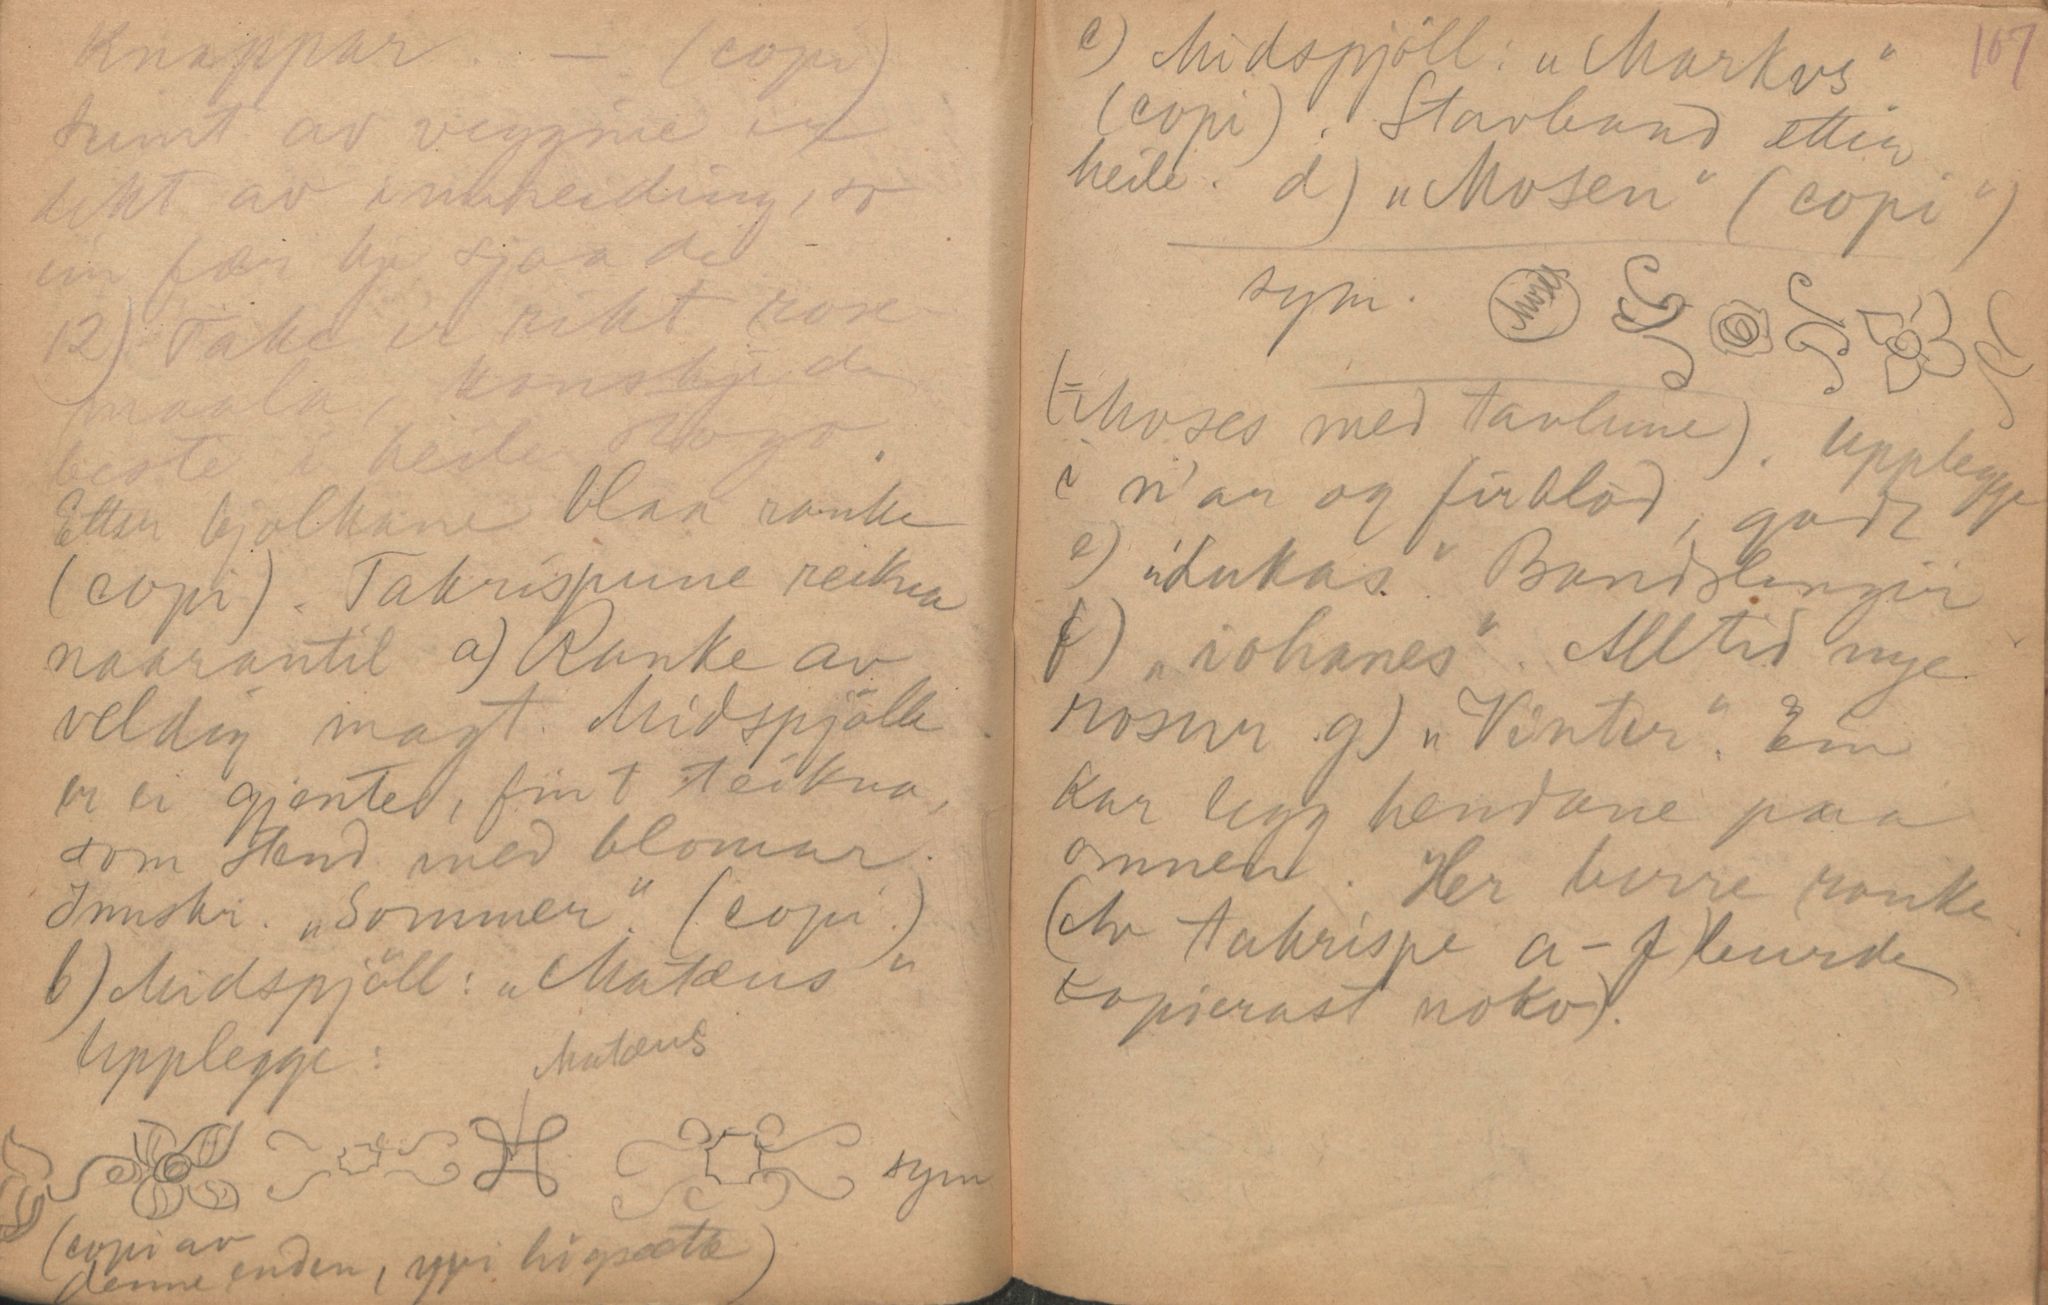 Knappar. — (copi)
sumt av veggine er
dekt av innreiding, so
ein fær kje sjaa de
12) Take er rikt rose-
maala, kanskje de
beste i heile
Etter bjølkane blaa ranke
(copi). Takrispune reikna
naarantil a) Ranke av
veldig magt. Midspjöll
er ei gjente, fint teikna,
som stend med blomar.
Innskr. „Sommer“ (copi)
b) Midspjöll: „Matæus“
Upplegge:
Matæus
sym
(copi av
denne enden, yvi högsæte)
107
c) Midspjöll: „Markvs“
(copi). Stavband etter
heile. d) „Mosen“ (copi)
sym. Moses
(= Moses med tavlune). Upplegge
i n'ar og firblöd, godt
e) „Lukas“ Bandslengjir
f) „iohanes“. Alltid nye
rosur g) „Vinter“. Ein
Kar legg hendane paa
omnen. Her berre ranke
(Av takrispe a-f burde
kopierast noko).